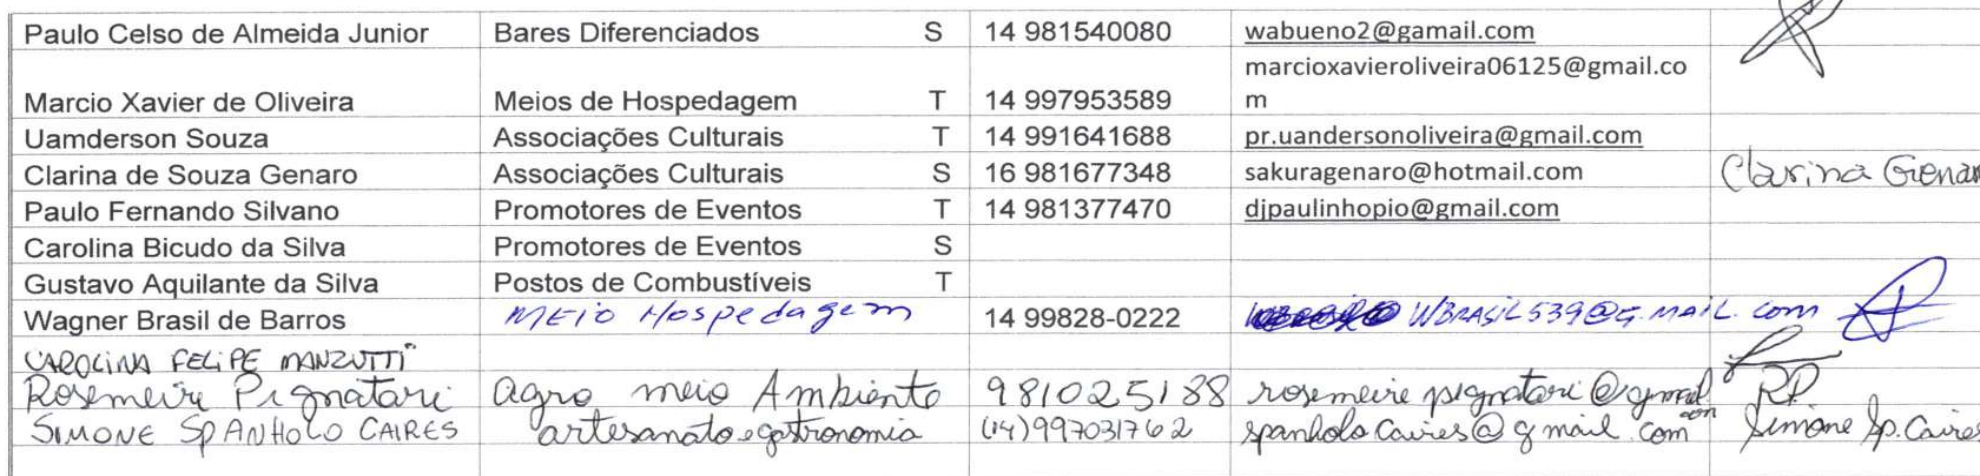 Paulo Celso de Almeida Junior Bares Diferenciados S 14 981540080 wabueno2@gamail.com
marcioxavieroliveira06125@gmail.co
Marcio Xavier de Oliveira Meios de Hospedagem T 14 997953589 m
Uamderson Souza Associações Culturais T 14 991641688 pr.uandersonoliveira@gmail.com
Clarina de Souza Genaro Associações Culturais S 16 981677348 sakuragenaro@hotmail.com Clarina Genar
Paulo Fernando Silvano Promotores de Eventos T 14 981377470 djpaulinhopio@gmail.com
Carolina Bicudo da Silva Promotores de Eventos S
Gustavo Aquilante da Silva Postos de Combustíveis T
Wagner Brasil de Barros MEIO HospedagEm 14 99828-0222 WBRASIL539@G.MAIL.com
CAROLINA FELIPE MANZUTTI
Rosemeire Pignatari agro meio Ambiente 981025188 rosemeire pignatari@gmail.com RP
SIMONE SPANHOLO CAIRES artesanato e gastronomia (14)997031762 spanholo caires@gmail.com Simone Sp. Caires